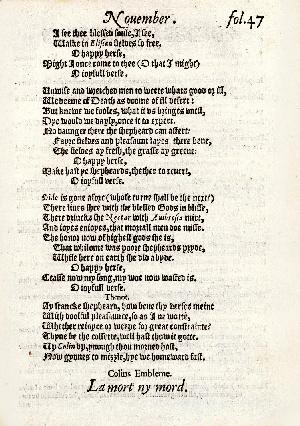 Nouember.
fol.47
I see thee blessed soule, I see,
Walke in Elisian fieldes so free.
O happy herse,
Might I once come to thee (O that I might)
O ioyfull verse.
Vnwise and wretched men to weete whats good or ill,
We deeme of Death as doome of ill desert:
But knewe we fooles, what it vs bringes vntil,
Dye would we dayly, once it to expert.
No daunger there the shepheard can astert:
Fayre fieldes and pleasaunt layes there bene,
The fieldes ay fresh, the grasse ay greene:
O happy herse,
Make hast ye shepheards, thether to reuert,
O ioyfull verse.
Dido is gone afore (whose turne shall be the next?)
There liues shee with the blessed Gods in blisse,
There drincks she Nectar with Ambrosia mixt,
And ioyes enioyes, that mortall men doe misse.
The honor now of highest gods she is,
That whilome was poore shepheards pryde,
While here on earth she did abyde.
O happy herse,
Ceasse now my song, my woe now wasted is.
O ioyfull verse.
Thenot.
Ay francke shepheard, how bene thy verses meint
With doolful pleasaunce, so as I ne wotte,
Whether reioyce or weepe for great constrainte?
Thyne be the cossette, well hast thow it gotte.
Vp Colin vp, ynough thou morned hast,
Now gynnes to mizzle, hye we homeward fast.
Colins Embleme.
La mort ny mord.